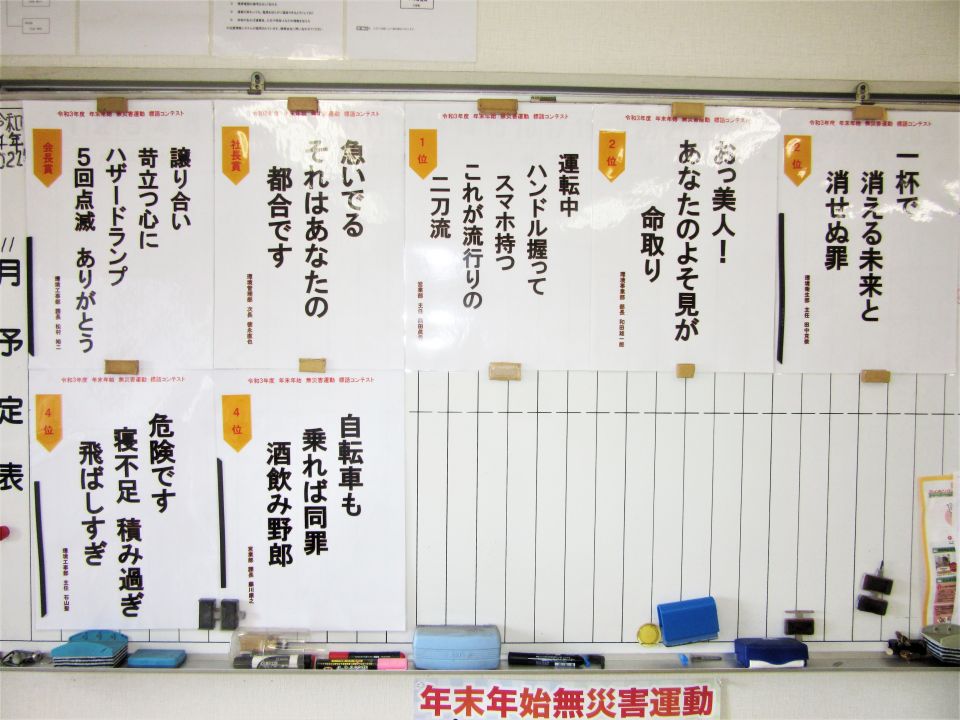 令和3年度 年末年始 無災害運動 標語コンテスト
会長賞
譲り合い
苛立つ心に
ハザードランプ
5回点滅 ありがとう
環境工事部 課長 松村 裕二
令和3年度 年末年始 無災害運動 標語コンテスト
社長賞
急いでる
それはあなたの
都合です
環境管理部 次長
令和3年度 年末年始 無災害運動 標語コンテスト
1位
運転中
ハンドル握って
スマホ持つ
これが流行りの
二刀流
営業部 主任
令和3年度 年末年始 無災害運動 標語コンテスト
2位
おっ美人!
あなたのよそ見が
命取り
環境事業部 部長 和田
令和3年度 年末年始 無災害運動 標語コンテスト
2位
一杯で
消える未来と
消せぬ罪
環境衛生部 主任 田中
令和3年度 年末年始 無災害運動 標語コンテスト
4位
危険です
寝不足 積み過ぎ
飛ばしすぎ
環境工事部 主任 石山
令和3年度 年末年始 無災害運動 標語コンテスト
4位
自転車も
乗れば同罪
酒飲み野郎
営業部 課長
11
月予定表
年末年始無災害運動